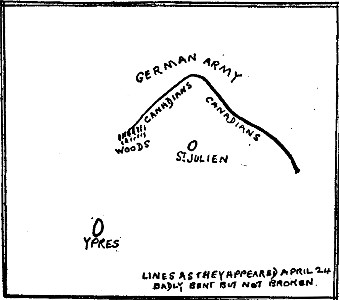 GERMAN ARMY
CANADIANS
CANADIANS
WOODS
ST JULIEN
YPRES
LINES AS THEY APPEARED APRIL 24
BADLY BENT BUT NOT BROKEN.